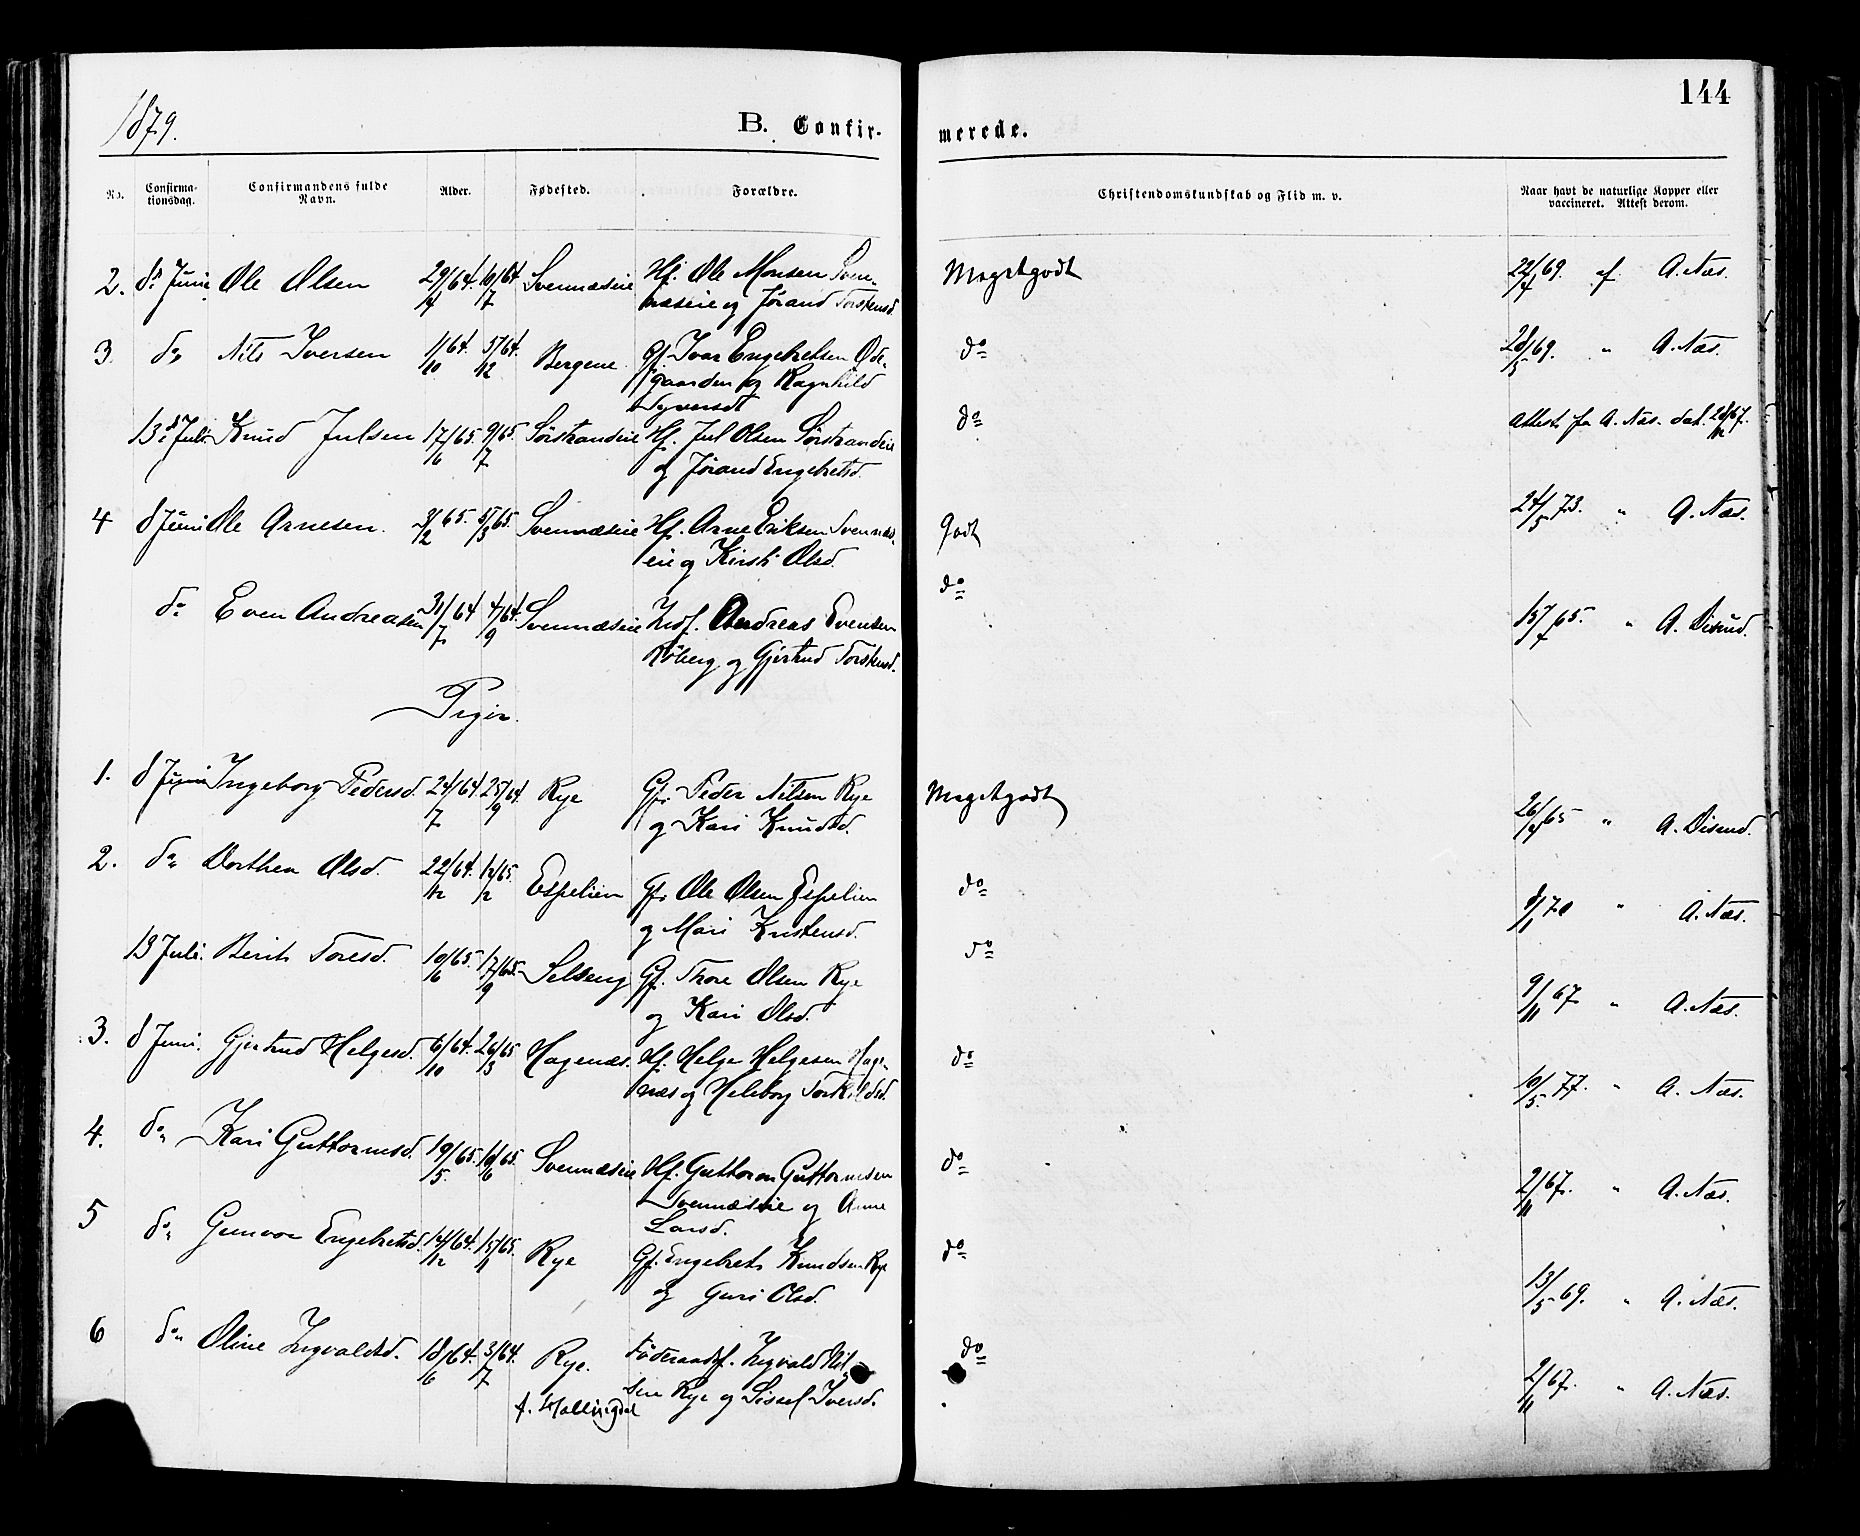 1879.
B. Confir-
merede.
144
No.
Confirma-
tionsdag.
Confirmandens fulde
Navn.
Alder.
Fødested.
Forældre.
Christendomskundskab og Flid m. v.
Naar havt de naturlige Kopper eller
vaccineret. Attest derom.
2. 8 Juni Ole Olsen 29/4 64. 10/7 64 Svennæseie Hf. Ole Monsen Sven-
næseie og Jørand Torstensd.
Megetgodt
22/7 69. af A. Næs.
3. do Nils Iversen 1/10 64. 5/12 64. Bergene Gf. Ivar Engebretsen Øde-
gaarden og Ragnhild
Syversdt
do
28/5 69. " A. Næs.
13 Juli Knud Julsen 17/6 65. 9/7 65. Sørstrandeie Hf. Jul Olsen Sørstrandeie
og Jørand Engebretsd.
do
Attest fra A. Næs. dat. 28/12 67.
4 8 Juni Ole Arnesen. 3/2 65. 5/3 65. Svennæseie Hf. Arne Eriksen Svennæs-
eie og Kirsti Olsd.
Godt
24/5 73. " A. Næs.
do Even Andreasen 31/7 64 4/9 64. Svennæseie Indf. Andreas Evensen
Røberg og Gjertrud Torstensd.
do
15/7 65. " A. Disrud.
Piger.
1. 8 Juni Ingeborg Pedersd. 24/7 64 25/9 64. Rye Gf. Peder Nilsen Rye
og Kari Knudsd.
Megetgodt
26/9 65 " A. Disrud.
2. do Dorthea Olsd. 22/12 64. 12/2 65. Espelien Gf. Ole Olsen Espelien
og Mari Kristensd.
do
8/1 70 " A. Næs.
13 Juli. Berit Toresd. 10/6 65. 17/9 65. Selseng Gf. Thore Olsen Rye
og Kari Olsd.
do
9/11 67 " A. Næs.
3. 8 Juni. Gjertrud Helgesd. 6/10 64. 26/3 65 Hagenæs. Hf. Helge Helgesen Hage-
næs og Helebog Torkildsd.
do
10/5 77. " A. Næs.
4. do Kari Guttormsd. 19/5 65. 18/6 65. Svennæseie Hf. Guttorm Guttormsen
Svennæseie og Anne
Larsd.
do
2/11 67. " A. Næs.
5 do Gunvor Engebretsd. 14/12 64. 15/1 65. Rye Gf. Engebret Knudsen Rye
og Guri Olsd.
do
13/5 69. " A. Næs.
6 do Oline Ingvaldsd. 18/6 64. 3/7 64. Rye. Føderaadsf. Ingvald Nil-
sen Rye og Sissel Iversd.
f. Hallingdal
do
2/11 67. " A. Næs.